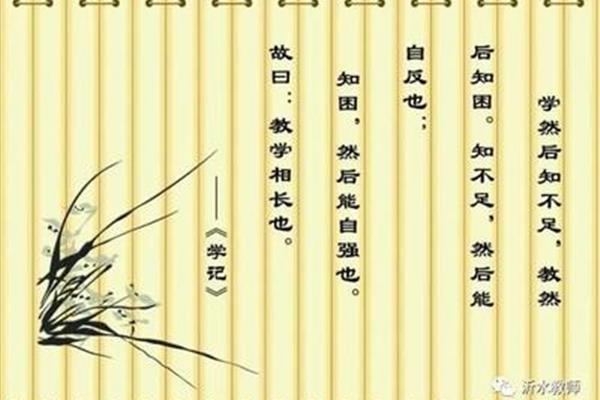 学然后知不足，教然
后知困。知不足，然后能
自反也；
知困，然后能自强也。
故曰：教学相长也。
——《学记》
沂水教师